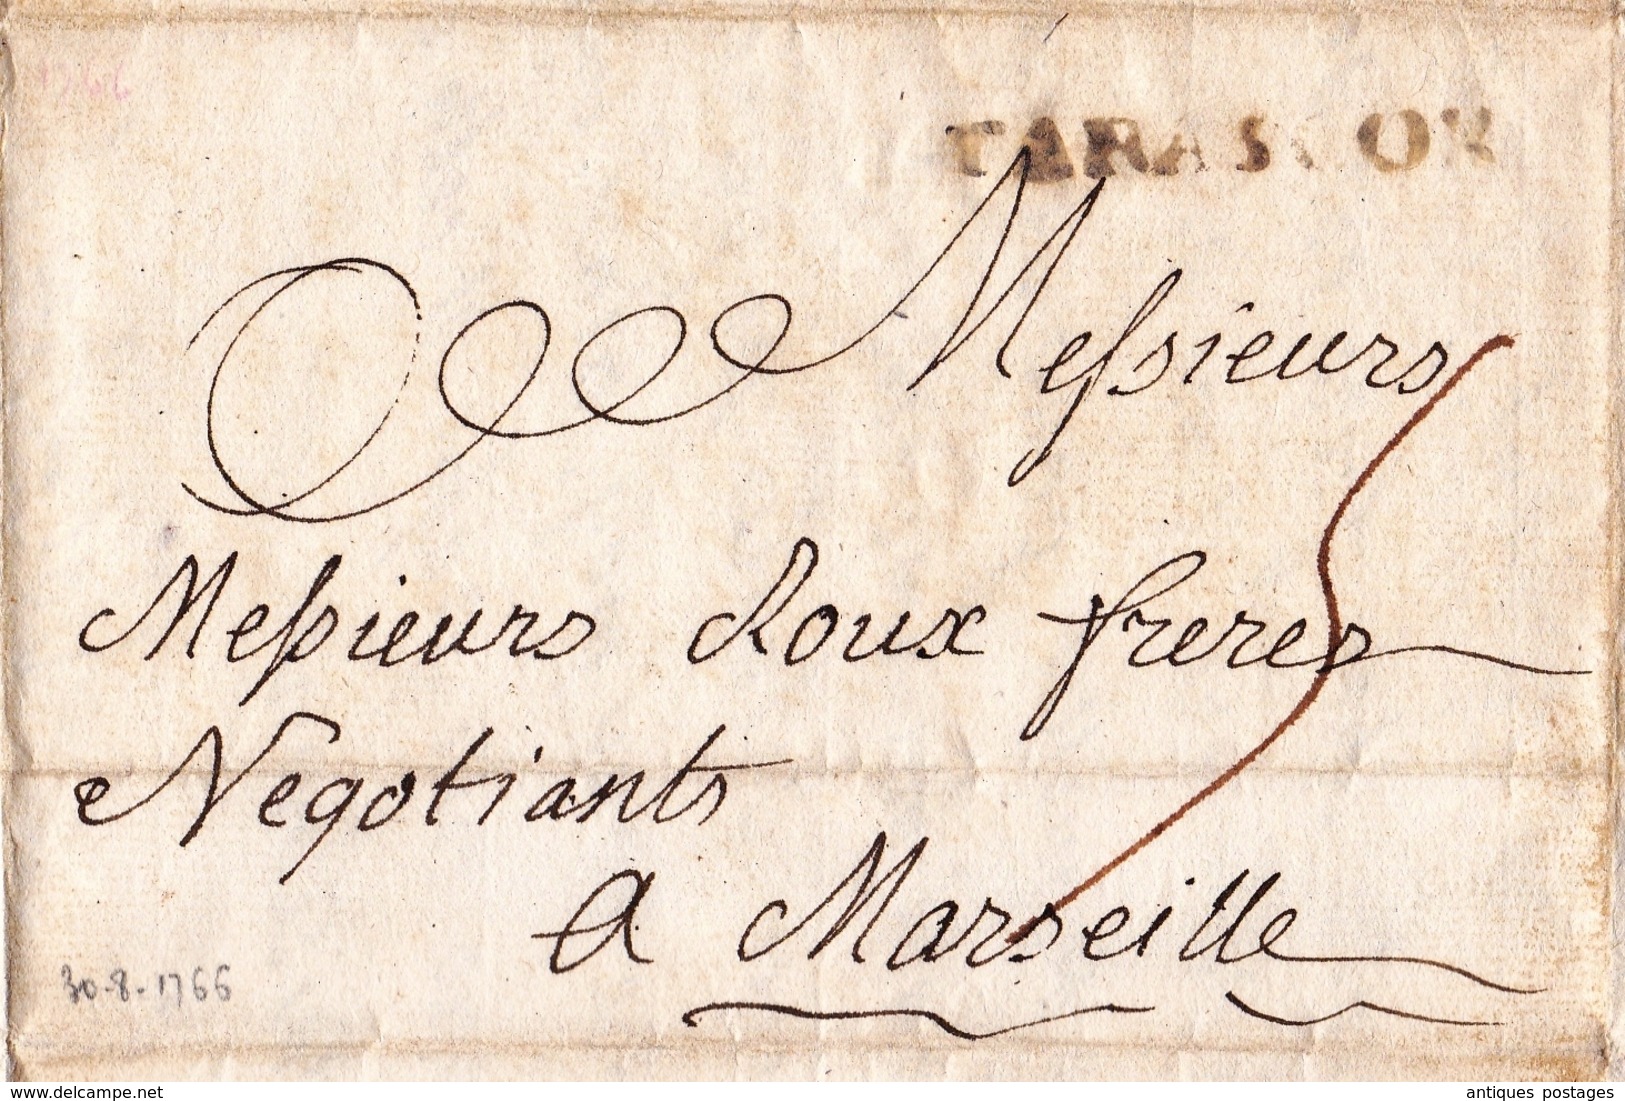 1766
TARASCON
Messieurs
Messieurs Roux freres
Negotiants
a Marseille
30-8-1766
www.delcampe.net
antiques postages